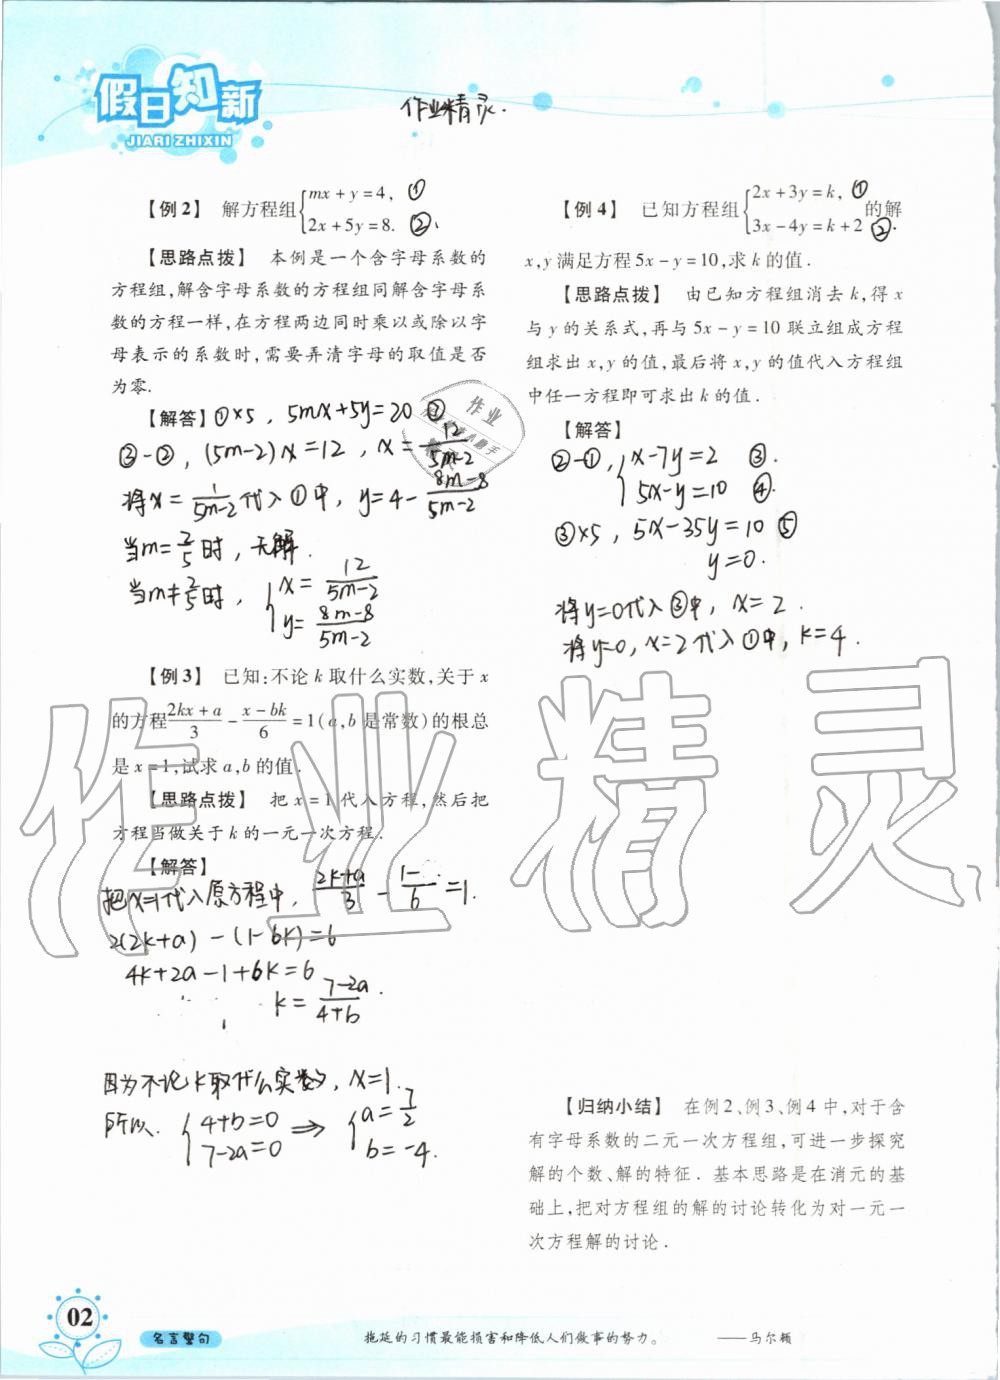 假日知新
JIARI ZHIXIN
作业精灵.
【例2】 解方程组{mx+y=4, ①
2x+5y=8. ②
【思路点拨】 本例是一个含字母系数的
方程组,解含字母系数的方程组同解含字母系
数的方程一样,在方程两边同时乘以或除以字
母表示的系数时,需要弄清字母的取值是否
为零.
【解答】①×5, 5mx+5y=20 ③
③-②, (5m-2)x=12, x=12/(5m-2)
将x=1/(5m-2)代入①中, y=4-(8m-8)/(5m-2)
当m=2/5时, 无解.
当m≠2/5时, {x=12/(5m-2)
y=(8m-8)/(5m-2)
【例3】 已知:不论k取什么实数,关于x
的方程(2kx+a)/3-(x-bk)/6=1(a,b是常数)的根总
是x=1,试求a,b的值.
【思路点拨】 把x=1代入方程,然后把
方程当做关于k的一元一次方程.
【解答】
把x=1代入原方程中, (2k+a)/3-(1-)/6=1.
2(2k+a)-(1-bk)=6
4k+2a-1+bk=6
k=(7-2a)/(4+b).
因为不论k取什么实数, x=1.
所以. {4+b=0
7-2a=0 ⇒ {a=7/2
b=-4.
【例4】 已知方程组{2x+3y=k, ①
3x-4y=k+2 ② 的解
x,y满足方程5x-y=10,求k的值.
【思路点拨】 由已知方程组消去k,得x
与y的关系式,再与5x-y=10联立组成方程
组求出x,y的值,最后将x,y的值代入方程组
中任一方程即可求出k的值.
【解答】
②-①, {x-7y=2 ③.
5x-y=10 ④.
③×5, 5x-35y=10 ⑤
y=0.
将y=0代入③中, x=2.
将y=0, x=2代入①中, k=4.
【归纳小结】 在例2、例3、例4中,对于含
有字母系数的二元一次方程组,可进一步探究
解的个数、解的特征.基本思路是在消元的基
础上,把对方程组的解的讨论转化为对一元一
次方程解的讨论.
作业精灵
作业
02
名言警句
拖延的习惯最能损害和降低人们做事的努力。 ——马尔顿